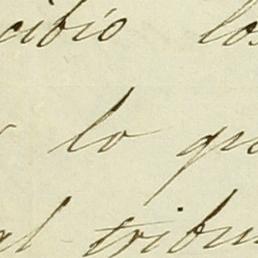 cibió los
lo que
al tribun